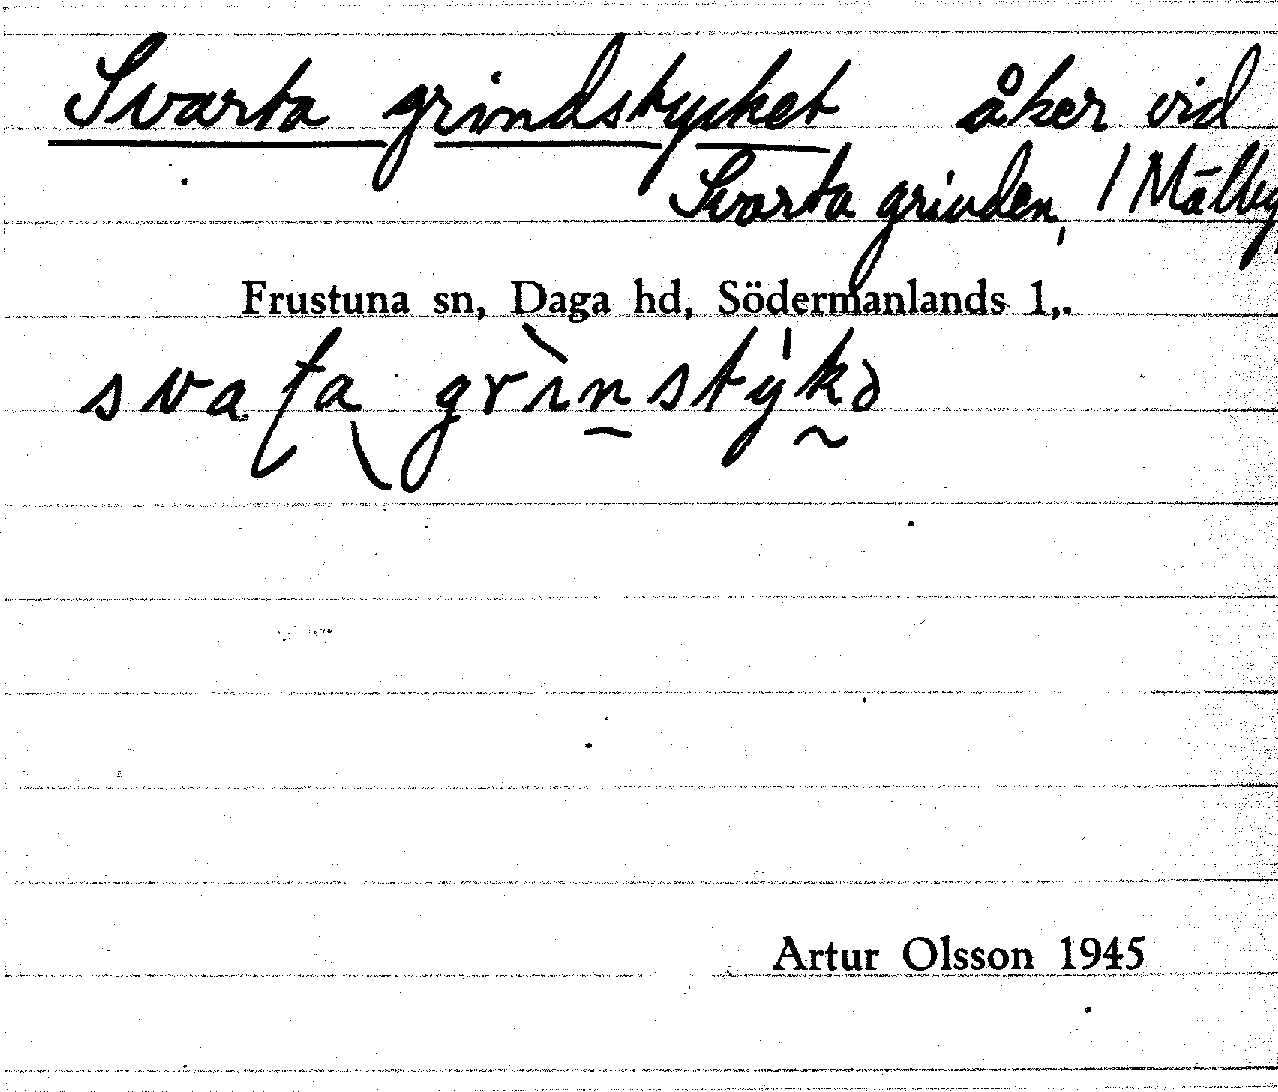 Svarta grindstycket åker vid
Svarta grinden, / Mälby,
Frustuna sn, Daga hd, Södermanlands l,.
Artur Olsson 1945